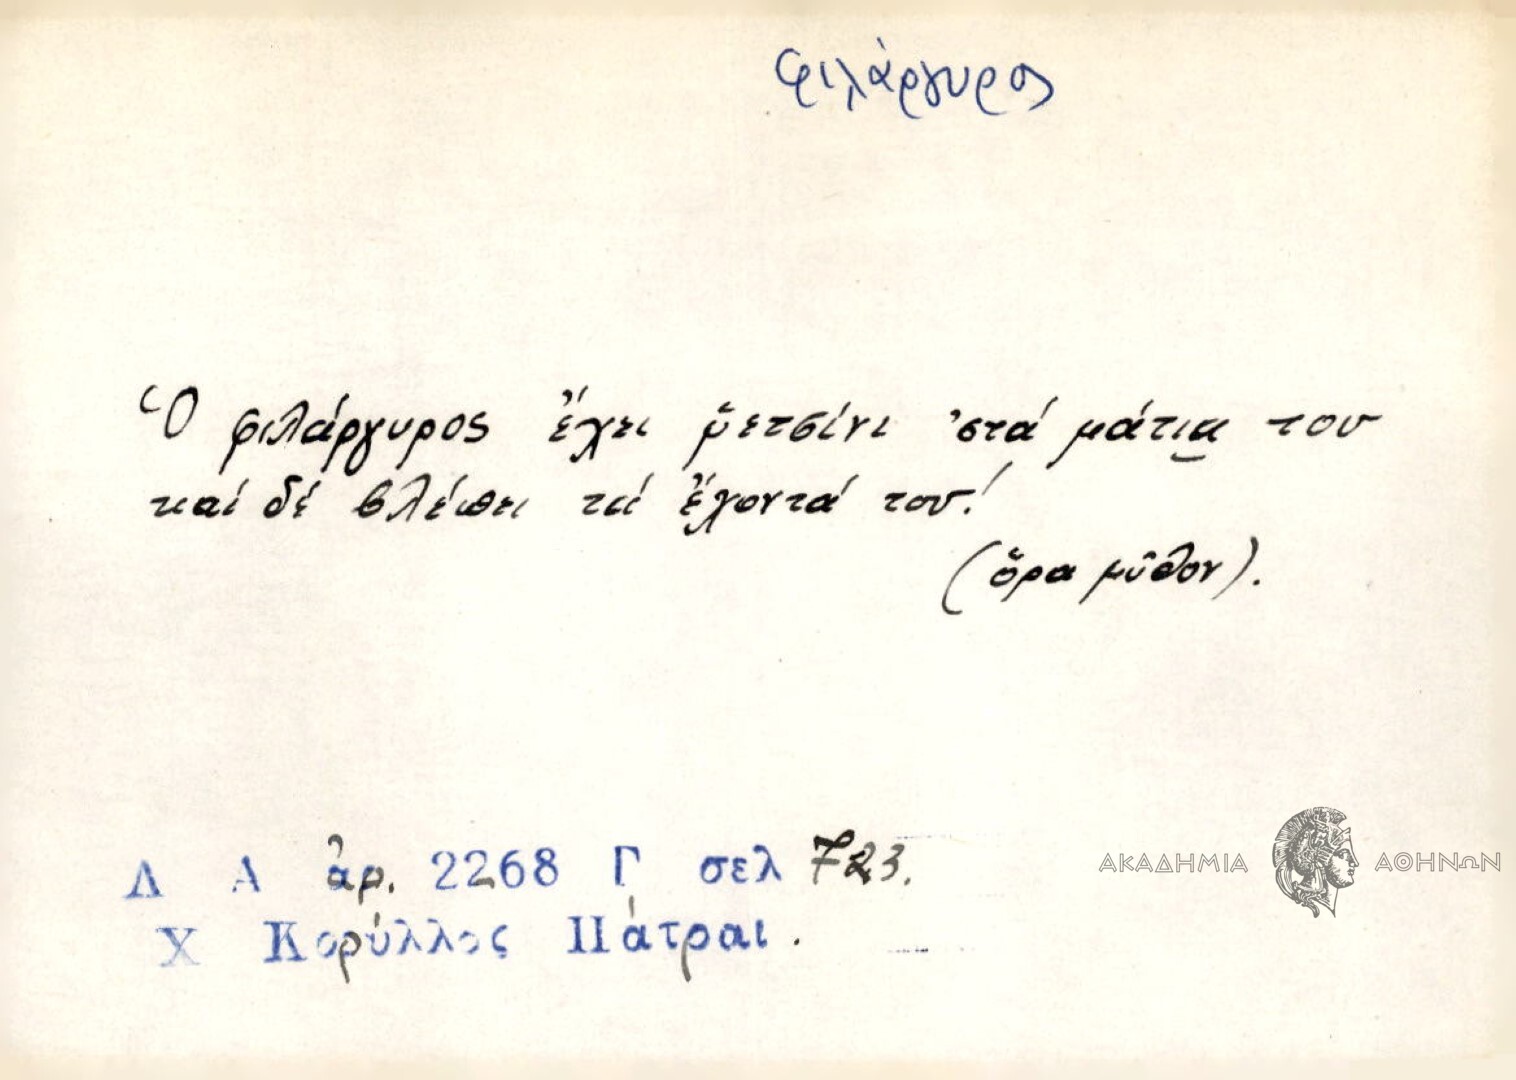 φιλάργυρος
Ὁ φιλάργυρος ἔχει ῥετσίνι 'στά μάτια του
καί δέ βλέπει τά ἔχοντά του!
(ὅρα μῦθον).
Λ Α ἀρ. 2268 Γ σελ 723.
Χ Κορύλλος Πάτραι.
ΑΚΑΔΗΜΙΑ ΑΘΗΝΩΝ